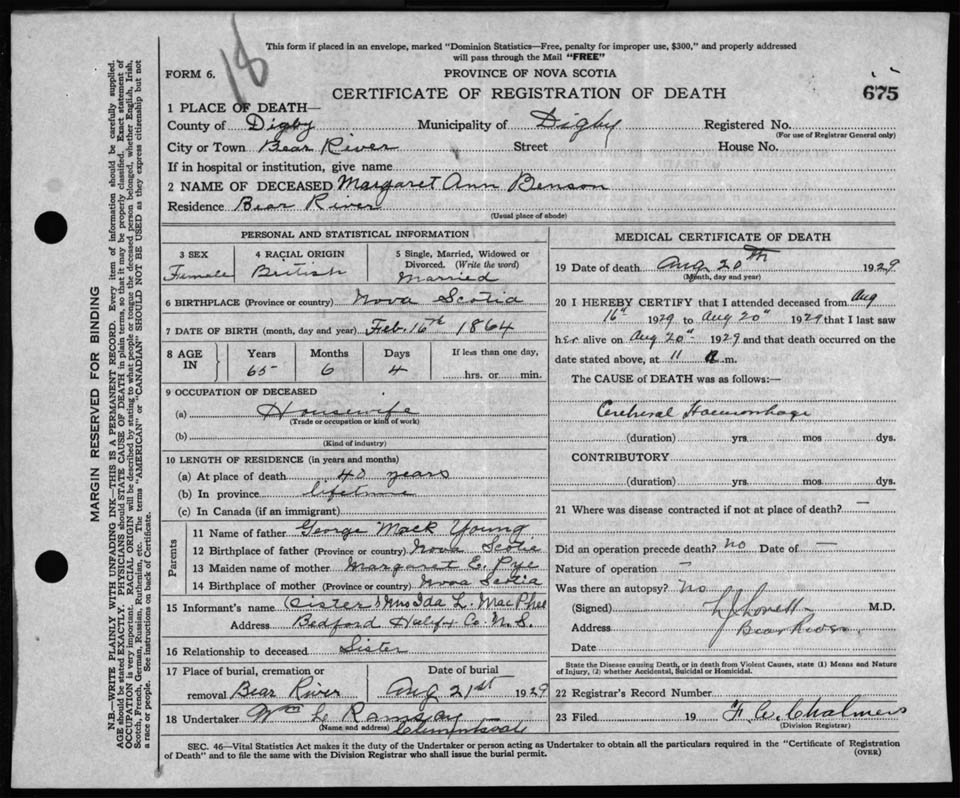 18
This form if placed in an envelope, marked "Dominion Statistics—Free, penalty for improper use, $300," and properly addressed
will pass through the Mail "FREE"
FORM 6.
PROVINCE OF NOVA SCOTIA
CERTIFICATE OF REGISTRATION OF DEATH
675
1 PLACE OF DEATH—
County of Digby Municipality of Digby Registered No.
(For use of Registrar General only)
City or Town Bear River Street House No.
If in hospital or institution, give name
2 NAME OF DECEASED Margaret Ann Benson
Residence Bear River
(Usual place of abode)
PERSONAL AND STATISTICAL INFORMATION
3 SEX 4 RACIAL ORIGIN 5 Single, Married, Widowed or
Divorced. (Write the word)
Female British Married
6 BIRTHPLACE (Province or country) Nova Scotia
7 DATE OF BIRTH (month, day and year) Feb. 16th 1864
8 AGE IN Years Months Days If less than one day,
65 6 4 hrs. or min.
9 OCCUPATION OF DECEASED
(a) Housewife
(Trade or occupation or kind of work)
(b)
(Kind of industry)
10 LENGTH OF RESIDENCE (in years and months)
(a) At place of death 40 years
(b) In province lifetime
(c) In Canada (if an immigrant)
Parents
11 Name of father George Mack Young
12 Birthplace of father (Province or country) Nova Scotia
13 Maiden name of mother Margaret E. Pye
14 Birthplace of mother (Province or country) Nova Scotia
15 Informant's name (Sister) Mrs Ida L. MacPhee
Address Bedford Halifx Co. N.S.
16 Relationship to deceased Sister
17 Place of burial, cremation or Date of burial
removal Bear River Aug 21st 1929
18 Undertaker Wm L Ramsay
(Name and address) Clementsvale
MEDICAL CERTIFICATE OF DEATH
19 Date of death Aug 20TH 1929
(Month, day and year)
20 I HEREBY CERTIFY that I attended deceased from Aug
16" 1929 to Aug 20" 1929 that I last saw
her alive on Aug 20" 1929 and that death occurred on the
date stated above, at 11 a m.
The CAUSE of DEATH was as follows:—
Cerebral Haemorrhage
(duration) yrs. mos dys.
CONTRIBUTORY
(duration) yrs. mos. dys.
21 Where was disease contracted if not at place of death? —
Did an operation precede death? No Date of —
Nature of operation —
Was there an autopsy? No
(Signed) L J Lovett M.D.
Address Bear River
Date
State the Disease causing Death, or in death from Violent Causes, state (1) Means and Nature
of Injury, (2) whether Accidental, Suicidal or Homicidal.
22 Registrar's Record Number
23 Filed 19 F. W. Chalmers
(Division Registrar)
SEC. 46—Vital Statistics Act makes it the duty of the Undertaker or person acting as Undertaker to obtain all the particulars required in the "Certificate of Registration
of Death" and to file the same with the Division Registrar who shall issue the burial permit.
(OVER)
MARGIN RESERVED FOR BINDING
N.B.—WRITE PLAINLY WITH UNFADING INK—THIS IS A PERMANENT RECORD. Every item of information should be carefully supplied.
AGE should be stated EXACTLY. PHYSICIANS should STATE CAUSE OF DEATH in plain terms, so that it may be properly classified. Exact statement of
OCCUPATION is very important. RACIAL ORIGIN will be described by stating to what people or tongue the deceased person belonged, whether English, Irish,
Scotch, French, German, Russian, Ruthenian, etc. The terms "AMERICAN" or "CANADIAN" SHOULD NOT BE USED as they express citizenship but not
a race or people. See instructions on back of Certificate.